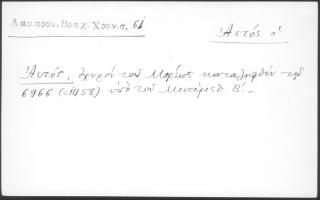 Λαμπρου. Βραχ. Χρον. σ. 61
Ἀετός ὁ
Ἀετός, ὀχυρόν τοῦ Μορέως καταληφθέν τῷ
6966 (=1458) ὑπό τοῦ Μωάμεθ Β΄.–